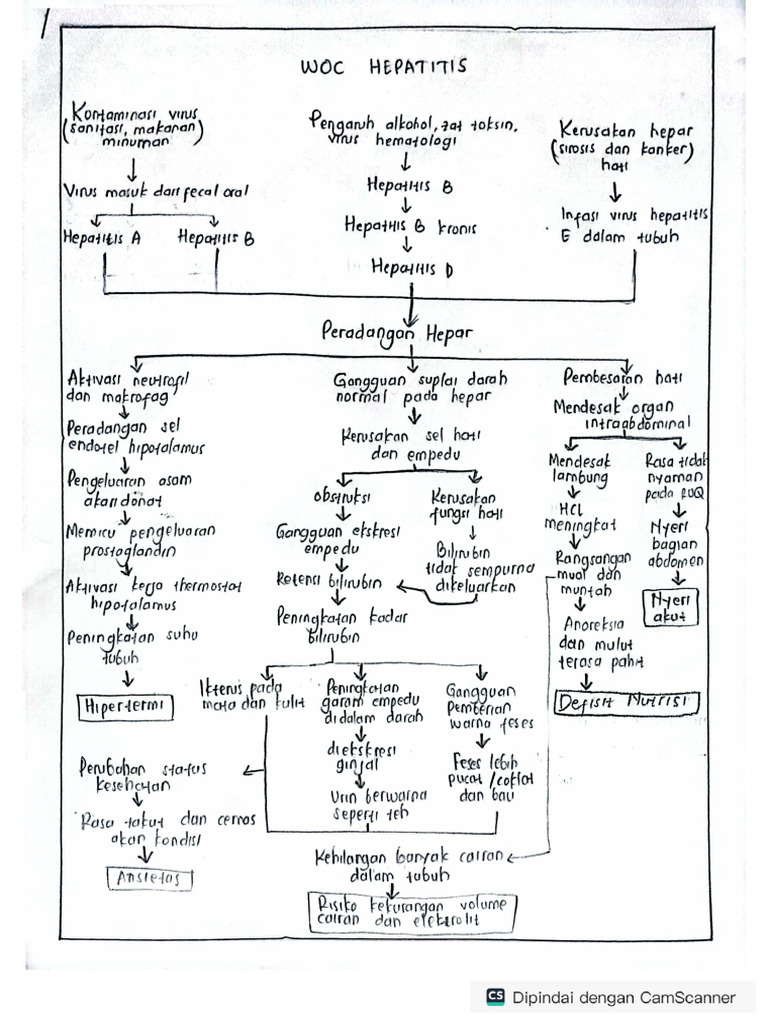 1
WOC HEPATITIS
Kontaminasi virus
(sanitasi, makanan
minuman)
Virus masuk dari fecal oral
Hepatitis A
Hepatitis B
Pengaruh alkohol, zat toksin,
virus hematologi
Hepatitis B
Hepatitis B kronis
Hepatitis D
Kerusakan hepar
(sirosis dan kanker)
hati
Infasi virus hepatitis
E dalam tubuh
Peradangan Hepar
Aktivasi neutrofil
dan makrofag
Peradangan sel
endotel hipotalamus
Pengeluaran asam
akandonat
Memicu pengeluaran
prostoglandin
Aktivasi kerja thermostat
hipotalamus
Peningkatan suhu
tubuh
Hipertermi
Gangguan suplai darah
normal pada hepar
Kerusakan sel hati
dan empedu
obstruksi
Gangguan ekskresi
empedu
Retensi bilirubin
Kerusakan
fungsi hati
Bilirubin
tidak sempurna
dikeluarkan
Peningkatan kadar
bilirubin
Pembesaran hati
Mendesak organ
intraabdominal
Mendesak
lambung
HCL
meningkat
Rangsangan
mual dan
muntah
Anoreksia
dan mulut
terasa pahit
Defisit Nutrisi
Rasa tidak
nyaman
pada RUQ
Nyeri
bagian
abdomen
Nyeri
akut
Ikterus pada
mata dan kulit
Peningkatan
garam empedu
didalam darah
diekskresi
ginjal
Urin berwarna
seperti teh
Gangguan
Pemberian
warna feses
Feses lebih
pucat/coklat
dan bau
Perubahan status
kesehatan
Rasa takut dan cemas
akan kondisi
Ansietas
Kehilangan banyak cairan
dalam tubuh
Risiko kekurangan volume
cairan dan elektrolit
CS Dipindai dengan CamScanner